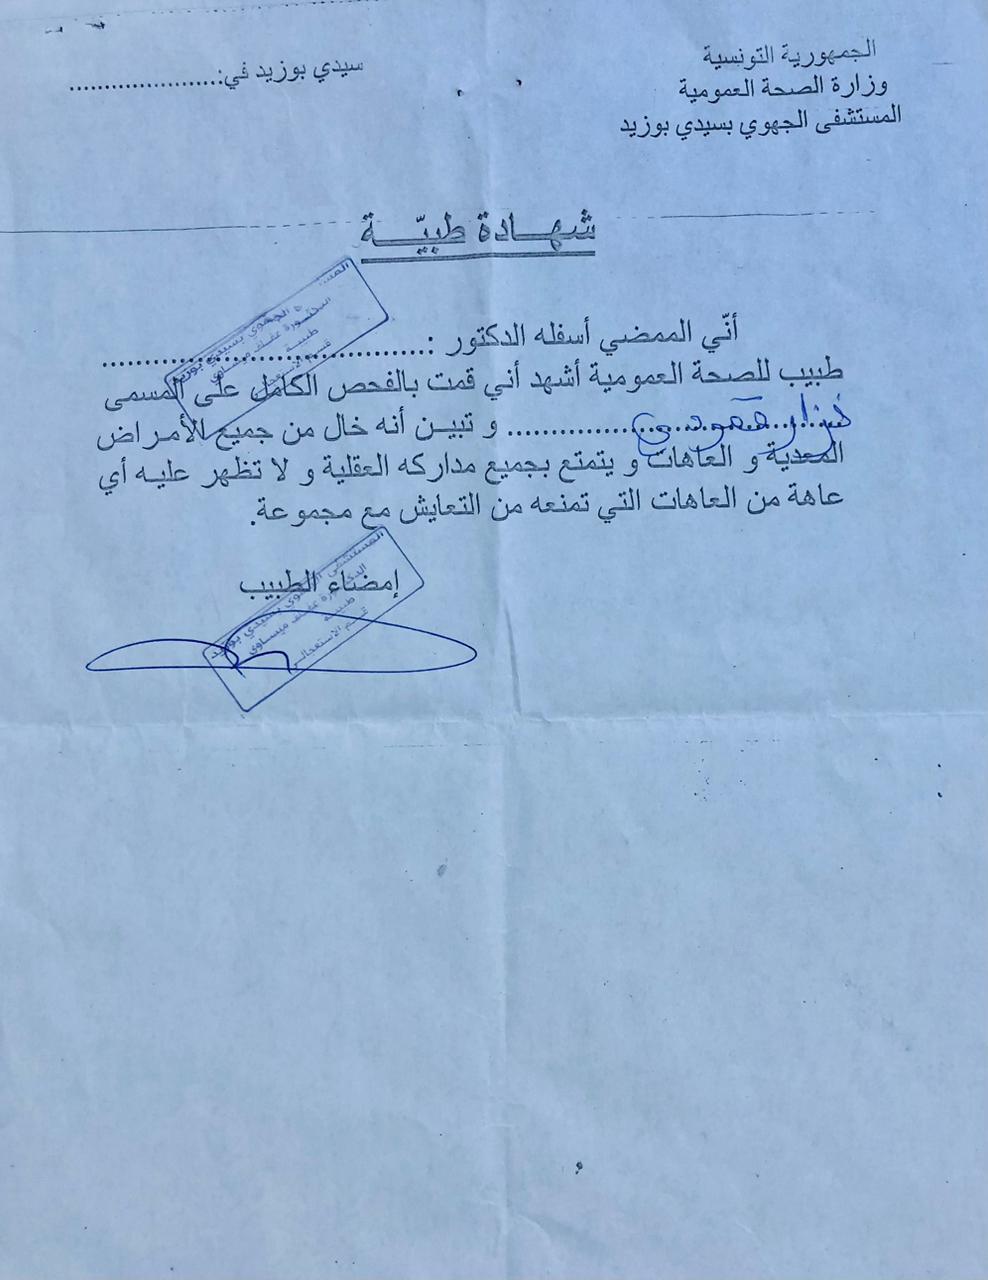 الجمهورية التونسية
وزارة الصحة العمومية
المستشفى الجهوي بسيدي بوزيد
سيدي بوزيد في:......................
شهـــادة طبيّـــة
أنّي الممضي أسفله الدكتور :..............................................
طبيب للصحة العمومية أشهد أني قمت بالفحص الكامل على المسمى
نزار ............................ و تبيــن أنه خال من جميع الأمـراض
المعدية و العاهات و يتمتع بجميع مداركه العقلية و لا تظهر عليـه أي
عاهة من العاهات التي تمنعه من التعايش مع مجموعة.
إمضاء الطبيب
الجهوي بسيدي بوزيد
طبيبة
المستشفى الجهوي بسيدي بوزيد
الدكتورة عفاف ميساوي
طبيبة
قسم الاستعجالي